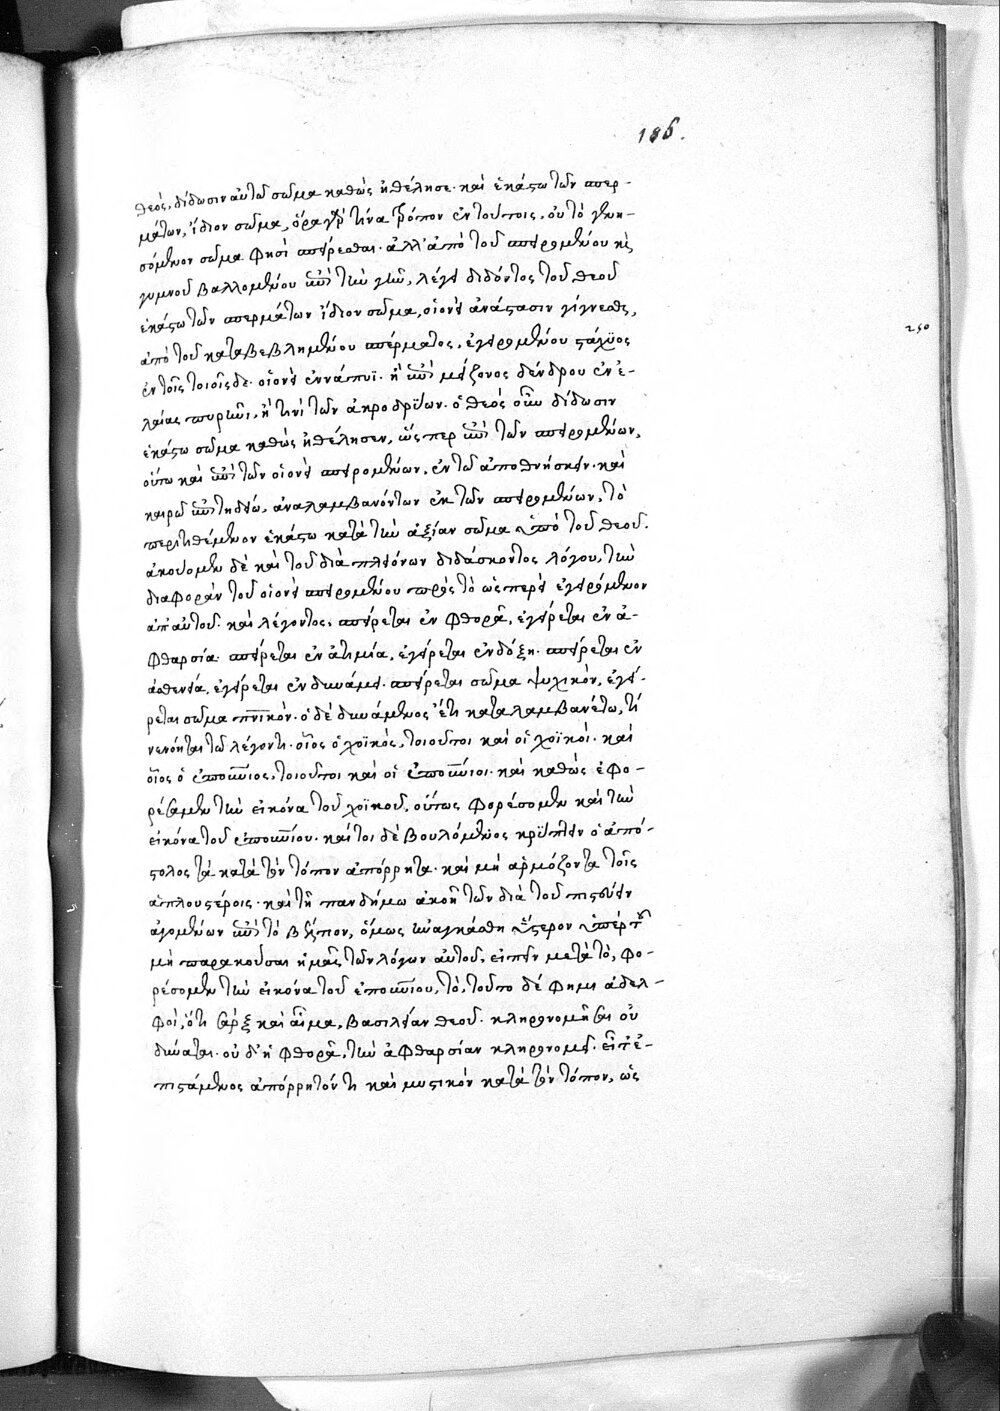 186.
θεὸς, δίδωσιν αὐτῶ σῶμα καθὼς ἠθέλησε· καὶ ἑκάστω τῶν σπερ-
μάτων, ἴδιον σῶμα, ὅρα γὰρ τίνα τρόπον ἐν τούτοις, οὐ τὸ γενη-
σόμενον σῶμα φησὶ σπείρεσθαι· ἀλλ' ἀπὸ τοῦ σπειρομένου καὶ
γυμνοῦ βαλλομένου ἐπὶ τὴν γῆν, λέγει διδόντος τοῦ θεοῦ
ἑκάστω τῶν σπερμάτων ἴδιον σῶμα, οἱονεὶ ἀνάστασιν γίγνεσθαι,
ἀπὸ τοῦ καταβεβλημένου σπέρματος, ἐγειρομένου στάχϋος
ἐν τοῖς τοιοῖσδε· οἱονεὶ ἐν νάπυϊ· ἢ ἐπὶ μείζονος δένδρου ἐν ἐ-
λαίας πυρῆνι, ἤ τινι τῶν ἀκροδρύων. ὁ θεὸς οὖν δίδωσιν
ἑκάστω σῶμα καθὼς ἠθέλησεν, ὥσπερ ἐπὶ τῶν σπειρομένων,
οὕτω καὶ ἐπὶ τῶν οἱονεὶ σπειρομένων, ἐν τῶ ἀποθνήσκειν· καὶ
καιρῶ ἐπιτηδείω, ἀναλαμβανόντων ἐκ τῶν σπειρομένων, τὸ
περιτιθέμενον ἑκάστω κατὰ τὴν ἀξίαν σῶμα ὑπὸ τοῦ θεοῦ.
ἀκούομεν δὲ καὶ τοῦ διὰ πλειόνων διδάσκοντος λόγου, τὴν
διαφορὰν τοῦ οἱονεὶ σπειρομένου πρὸς τὸ ὡσπερεὶ ἐγειρόμενον
ἀπ' αὐτοῦ· καὶ λέγοντος, σπείρεται ἐν φθορᾶ, ἐγείρεται ἐν ἀ-
φθαρσία· σπείρεται ἐν ἀτιμία, ἐγείρεται ἐν δόξη· σπείρεται ἐν
ἀσθενεία, ἐγείρεται ἐν δυνάμει· σπείρεται σῶμα ψυχικὸν, ἐγεί-
ρεται σῶμα πνικὸν· ὁ δὲ δυνάμενος ἔτι καταλαμβανέτω, τί
νενόηται τῶ λέγοντι· οἷος ὁ χοϊκὸς, τοιοῦτοι καὶ οἱ χοϊκοὶ· καὶ
οἷος ὁ ἐπουνιος, τοιοῦτοι καὶ οἱ ἐπουνιοι· καὶ καθὼς ἐφο-
ρέσαμεν τὴν εἰκόνα τοῦ χοϊκοῦ, οὕτως φορέσομεν καὶ τὴν
εἰκόνα τοῦ ἐπουνίου· καίτοι δὲ βουλόμενος κρύπτειν ὁ ἀπό-
στολος τὰ κατὰ τὸν τόπον ἀπόρρητα· καὶ μὴ ἁρμόζοντα τοῖς
ἁπλουστέροις· καὶ τῆ πανδήμω ἀκοῆ τῶν διὰ τοῦ πιστεύειν
ἀγομένων ἐπὶ τὸ βέλτιον, ὅμως ἠναγκάσθη ὕστερον ὑπὲρ τοῦ
μὴ παρακοῦσαι ἡμᾶς τῶν λόγων αὐτοῦ, εἰπεῖν μετὰ τὸ, φο-
ρέσομεν τὴν εἰκόνα τοῦ ἐπουνίου, τὸ, τοῦτο δέ φημι ἀδελ-
φοὶ, ὅτι σὰρξ καὶ αἷμα, βασιλείαν θεοῦ κληρονομῆσαι οὐ
δύναται· οὐδ' ἡ φθορὰ, τὴν ἀφθαρσίαν κληρονομεῖ. εἶτ' ἐ-
πιστάμενος ἀπόρρητόν τι καὶ μυστικὸν κατὰ τὸν τόπον, ὡς
250